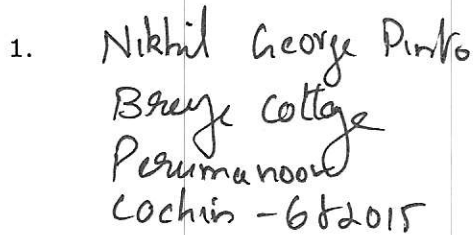 1. Nikhil George Pinto
Breeze Cottage
Perumanoor
Cochin - 682015